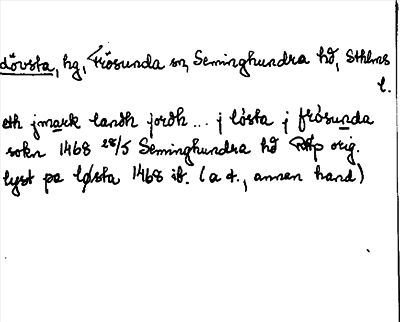 dövsta, hg, Frösunda sn, Seminghundra hd, Sthlms
l.
eth jmark landh jordh ... j lösta j frösunda
sokn 1468 28/5 Seminghundra hd RAp orig.
lyst pa løsta 1468 ib. (a t., annan hand)